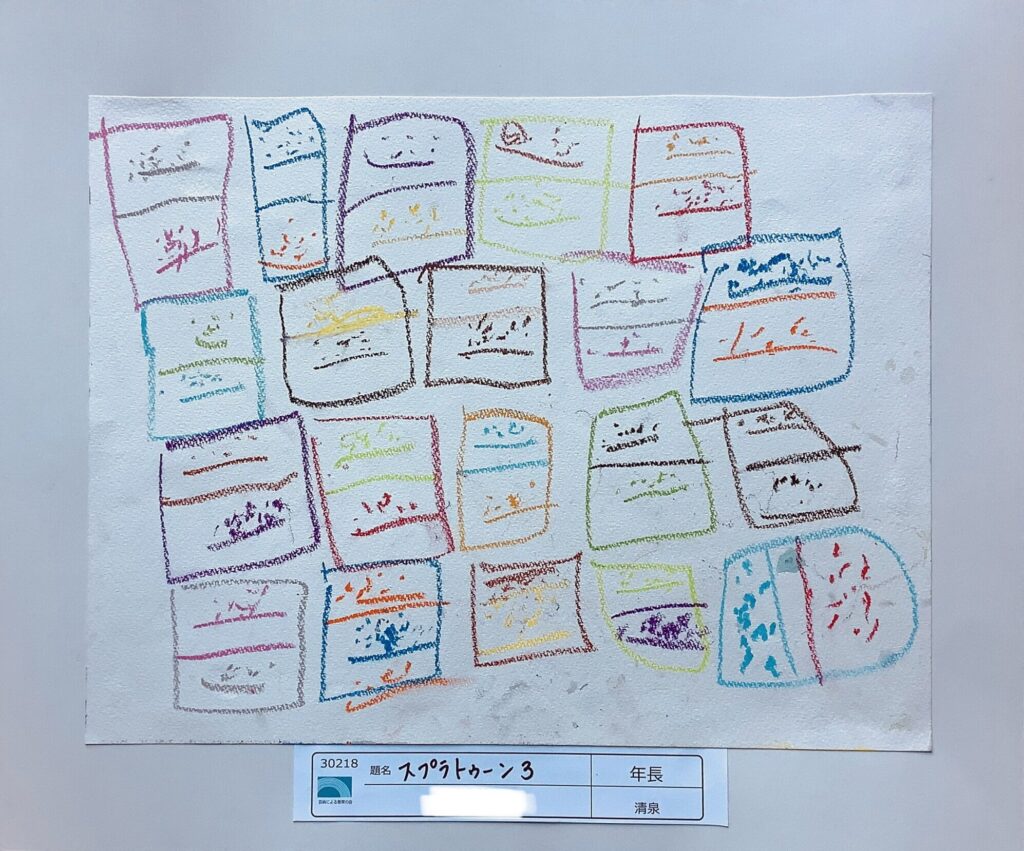 30218
題名 スプラトゥーン3
年長
芸術による教育の会
清泉